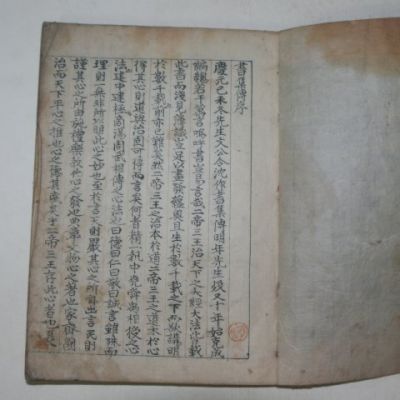 書集傳序
慶元己未冬先生文公令沈作書集傳明年先生歿又十年始克成
編總若干萬言嗚呼書豈易言哉二帝三王治天下之大經大法皆載
此書而淺見薄識豈足以盡發蘊奧且生於數千載之下而欲講明
於數千載前則亦已難矣然二帝三王之治本於道二帝三王之道本於心
得其心則道與治固可得而言矣何者精一執中堯舜禹相授之心
法也建中建極商湯周武相傳之心法也曰德曰仁曰敬曰誠言雖殊而
理則一無非所以明此心之妙也至於言天則嚴其心之所自出言民則
謹其心之所由施禮樂敎化心之發也典章文物心之著也家齊國
治而天下平心之推也心之德其盛矣乎二帝三王存此心者也夏